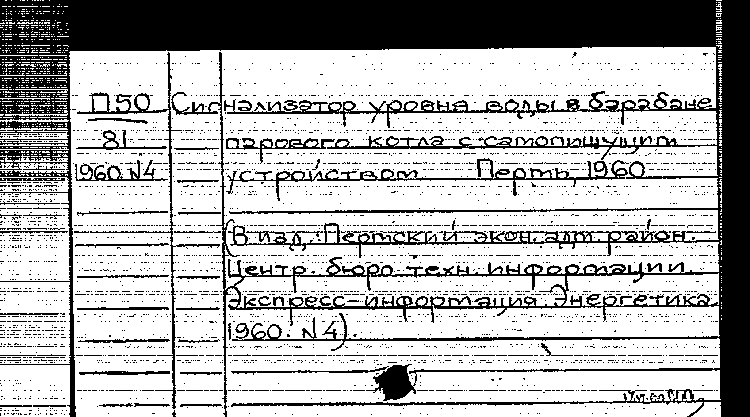 П50 Сигнализатор уровня воды в барабане
81 парового котла с самопишущим
1960 N4 устройством Пермь, 1960
(В изд.: Пермский экон. адм. район.
Центр. бюро техн. информации.
Экспресс-информация Энергетика
1960. N 4).